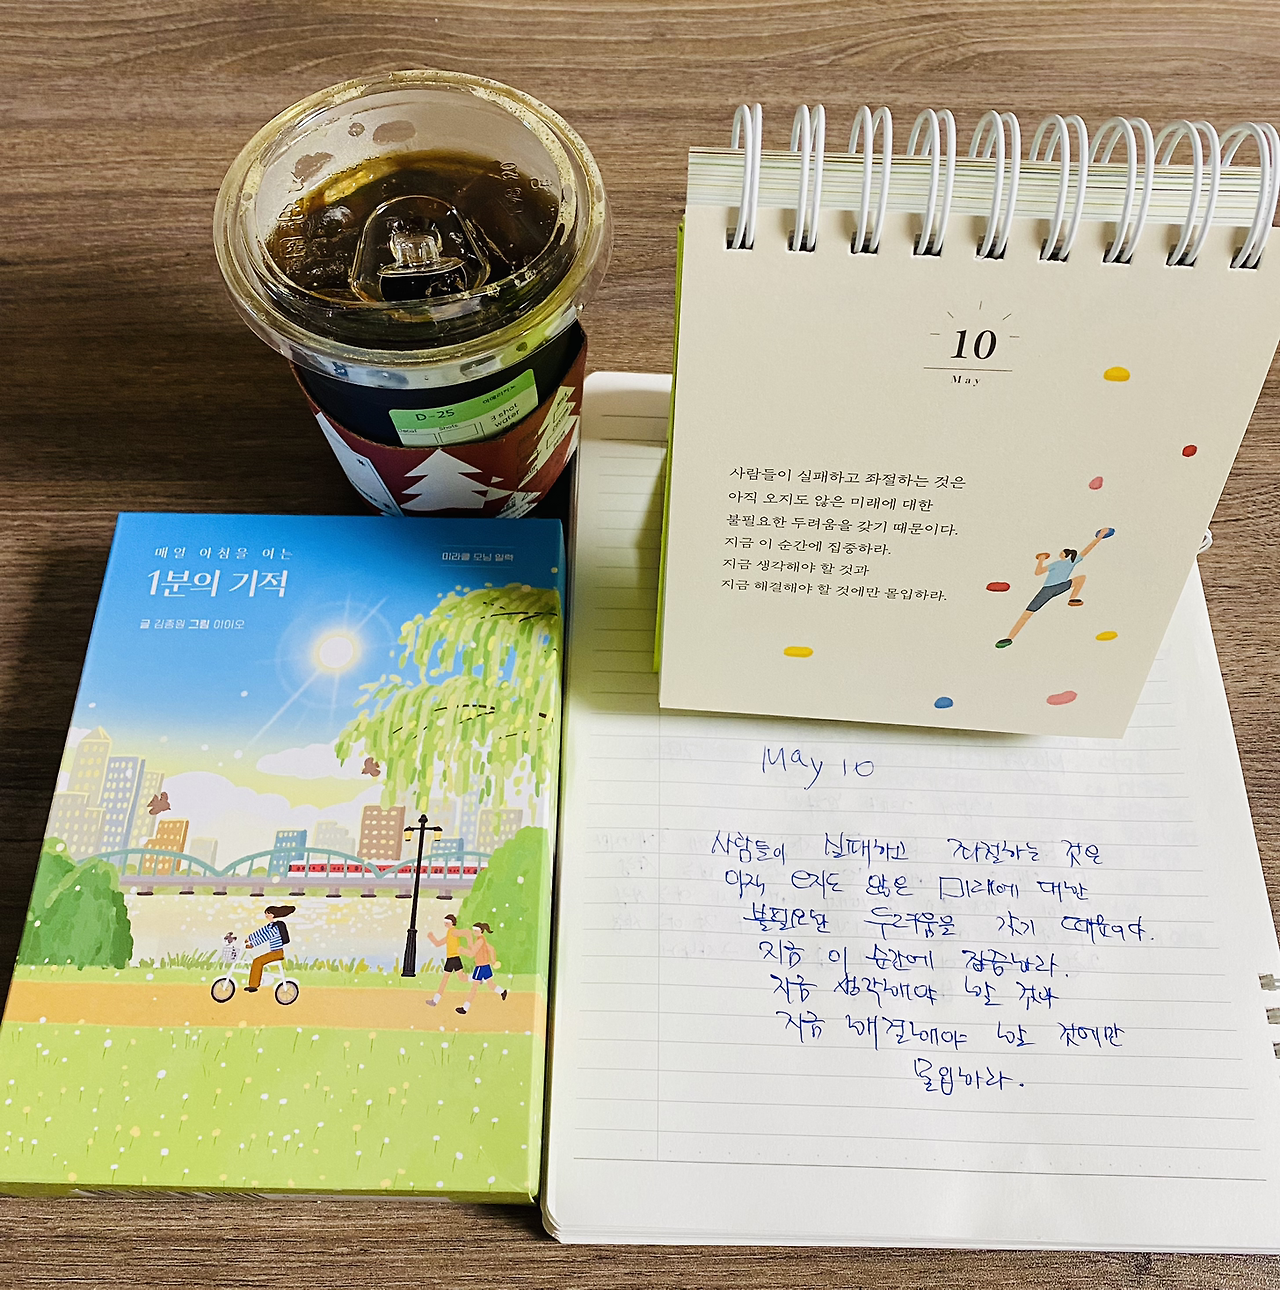 D-25
아메리카노
3 shot
water
Decaf Shots
10
May
사람들이 실패하고 좌절하는 것은
아직 오지도 않은 미래에 대한
불필요한 두려움을 갖기 때문이다.
지금 이 순간에 집중하라.
지금 생각해야 할 것과
지금 해결해야 할 것에만 몰입하라.
매일 아침을 여는
1분의 기적
미라클 모닝 일력
글 김종원 그림 이이오
May 10
사람들이 실패하고 좌절하는 것은
아직 오지도 않은 미래에 대한
불필요한 두려움을 갖기 때문이다.
지금 이 순간에 집중하라.
지금 생각해야 할 것과
지금 해결해야 할 것에만
몰입하라.